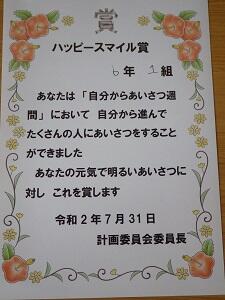 賞
ハッピースマイル賞
6年 1組
あなたは「自分からあいさつ週
間」において 自分から進んで
たくさんの人にあいさつをすること
ができました
あなたの元気で明るいあいさつに
対し これを賞します
令和2年7月31日
計画委員会委員長